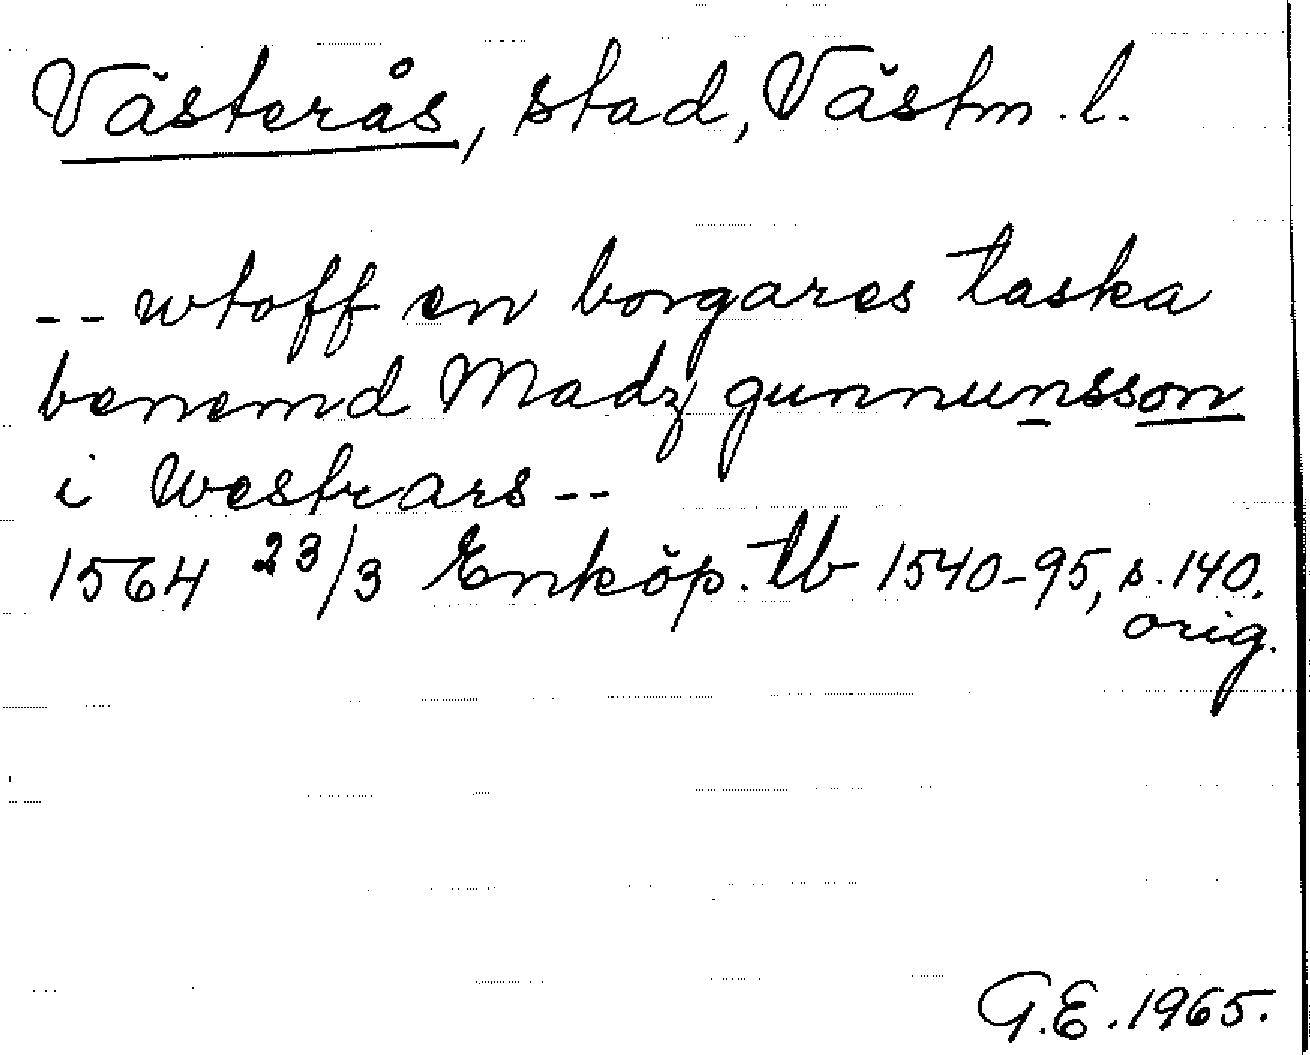 Västerås, stad, Västm.l.
-- wtoff en borgares taska
benemd Madz gunnunsson
i westrars --
1564 23/3 Enköp. tb 1540-95, s. 140.
orig.
G.E. 1965.